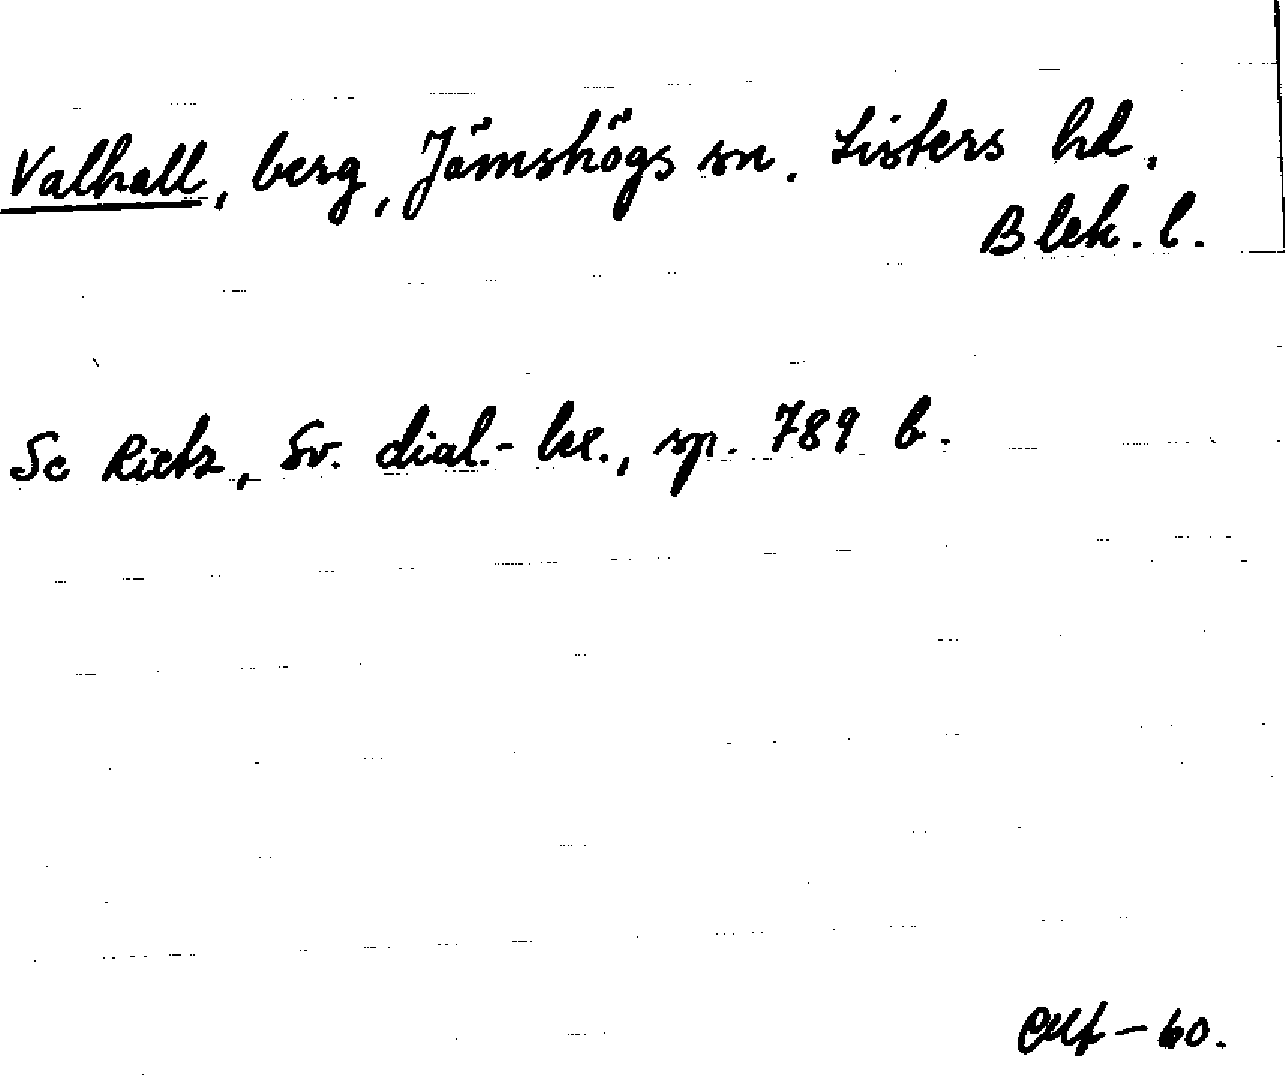 Valhall, berg, Jämshögs sn. Listers hd.
Blek. l.
Se Rietz, Sv. dial.-lex., sp. 789 b.
-60.